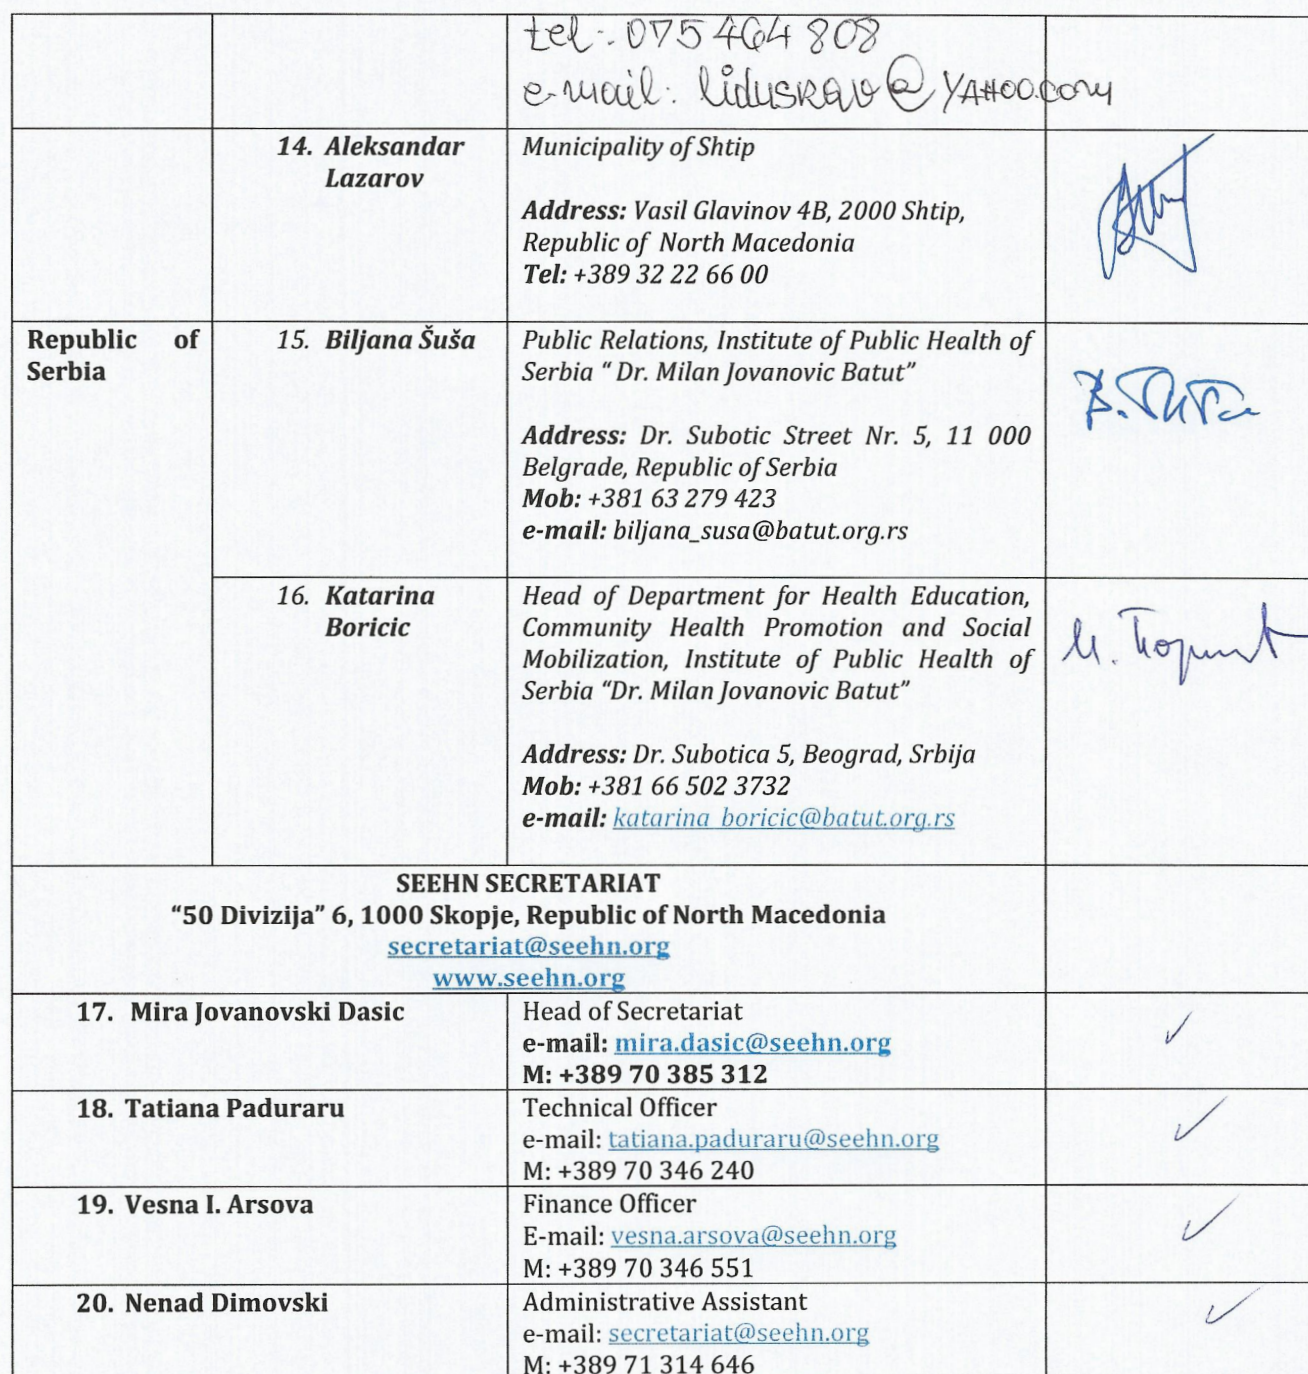 tel: 075 464 808
e-mail: liduskav@YAHOO.com
14. Aleksandar
Lazarov
Municipality of Shtip
Address: Vasil Glavinov 4B, 2000 Shtip,
Republic of North Macedonia
Tel: +389 32 22 66 00
Republic of
Serbia
15. Biljana Šuša
Public Relations, Institute of Public Health of
Serbia “ Dr. Milan Jovanovic Batut”
Address: Dr. Subotic Street Nr. 5, 11 000
Belgrade, Republic of Serbia
Mob: +381 63 279 423
e-mail: biljana_susa@batut.org.rs
16. Katarina
Boricic
Head of Department for Health Education,
Community Health Promotion and Social
Mobilization, Institute of Public Health of
Serbia “Dr. Milan Jovanovic Batut”
Address: Dr. Subotica 5, Beograd, Srbija
Mob: +381 66 502 3732
e-mail: katarina_boricic@batut.org.rs
SEEHN SECRETARIAT
“50 Divizija” 6, 1000 Skopje, Republic of North Macedonia
secretariat@seehn.org
www.seehn.org
17. Mira Jovanovski Dasic
Head of Secretariat
e-mail: mira.dasic@seehn.org
M: +389 70 385 312
18. Tatiana Paduraru
Technical Officer
e-mail: tatiana.paduraru@seehn.org
M: +389 70 346 240
19. Vesna I. Arsova
Finance Officer
E-mail: vesna.arsova@seehn.org
M: +389 70 346 551
20. Nenad Dimovski
Administrative Assistant
e-mail: secretariat@seehn.org
M: +389 71 314 646